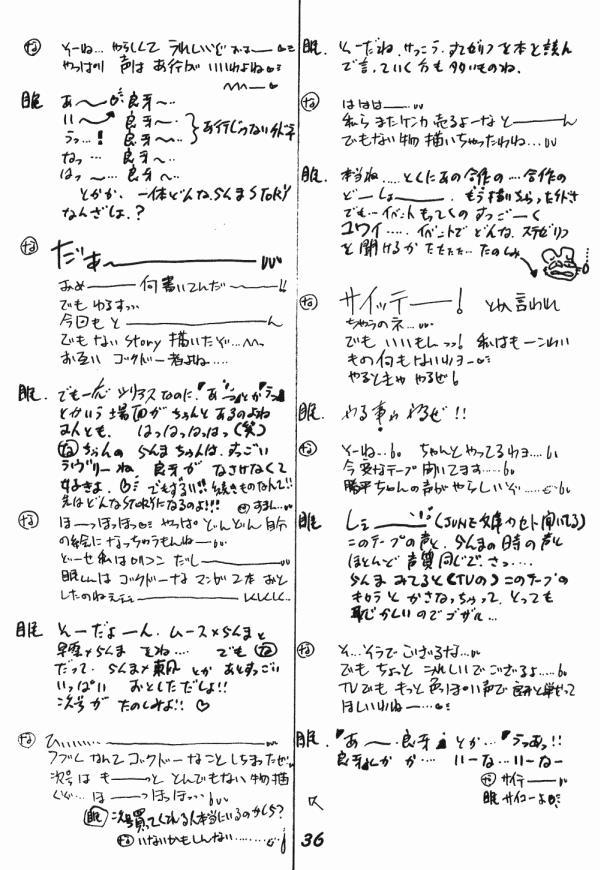 な そーね… やらしくて うれしいけど
やっぱり 声は あ行が いいわよね
眠 あ〜 良牙〜‥
い〜 良牙〜‥
うっ…! 良牙〜‥
なっ… 良牙〜‥
はっ〜… 良牙〜‥
とかか、一体どんならんまSTORY
なんざしょ。?
な だぁー
あぬ―― 何書いてんだ――!!
でも ゆるすっ‥
今回も と――――ん
でもない story 描いたぞ…
お互い ゴクドー者よね‥‥
眠. でも一応 シリアスなのに、「あ
とかいう 場面が ちゃんと あるのよね
なんとも。 はっはっはっはっ(笑)
な ちゃんの らんまちゃんは、すっごい
ラブリーね、良牙が なさけなくて
好きよ。♡ でもずるい!! 続きものなんて!!
先はどんなSTORYになるのよ!!!
な ほーっほっほっ やっぱ どんどん 自分
の絵に なっちゃうもんねー
どーせ私は ロリコン だしー
眠くんは ゴクドーな マンガ 2本 おと
したのねェェェ
眠 そーだよーん。ムース×らんまと
早雲×らんま をね… でも な
だって、らんま×東風 とか あとすっごい
いっぱい おとしただしょ!!
次号が たのしみよ!! ♡
な ひ‥‥‥
次号は もーーっと とんでもない 物 描
くぞ… ほーーっほっほっ…
眠 次号買ってくれる人本当にいるのかしら?
な いないかもしんない………
眠. そーだね。けっこう、すてゼリフを本と読ん
で言っていく 方も 多いものね。
な ははは――‥
私ら またケンカ 売るよーな と――――ん
でもない 物 描いちゃったわね…
眠. 本当ね‥‥ とくに あの 合作の … 合作の
どーしょ―――. もう描いちゃった
でも… イベント もってくの すっごーく
コワイ‥‥. イベントで どんな、ステゼリフ
を 聞けるか たのしみ
な サイッテ――! とか言われ
ちゃうのネ…
でも いいもんっっ! 私はも一コわい
もの何もないわヨー
やるときゃ やるぜ!
眠. やる事は やるぜ!!
な そーね… ちゃんと やってるわョ‥‥
今 変なテープ 聞いてます‥‥
勝平ちゃんの声が やらしいぞ‥‥
眠 しェ――― (JUNE文庫カセット聞いてる)
このテープの声と、らんまの時の声と
ほとんど 声質 同じで、さっ‥‥
らんま みてると(TVの) このテープの
キャラと かさなっちゃって、とっても
恥しいのでゴザル…
な そ…そうでございるな…
でも ちょっと うれしいでござるよ‥‥
TVでも もっと 色っぽい声で
ほしいわね――…
眠. 「あ〜. 良牙」とか…「うっあっ!!
良牙くん」か‥‥ いーな… いーなー
な サイテー――
眠 サイコーよ
36